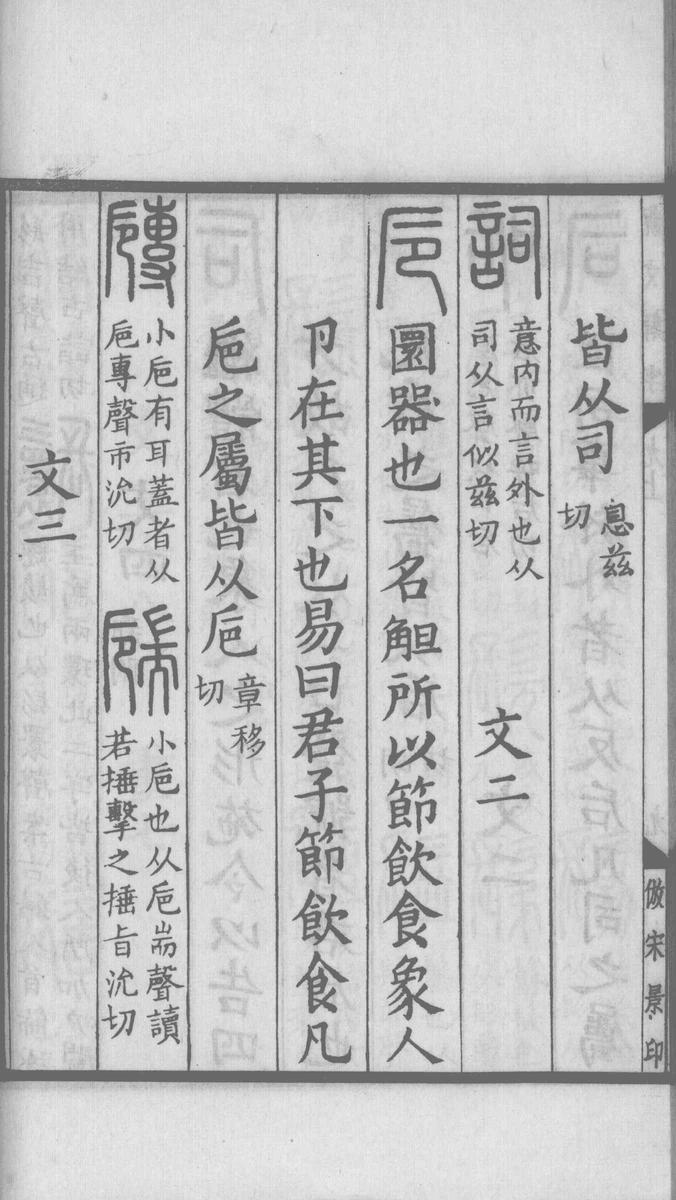 皆从司息茲切
詞意内而言外也从司从言似茲切 文二
巵圜器也一名觛所以節飲食象人
卪在其下也易曰君子節飲食凡
巵之屬皆从巵章移切
小巵有耳蓋者从巵專聲市沇切 小巵也从巵耑聲讀若捶擊之捶旨沇切
文三
倣宋景印